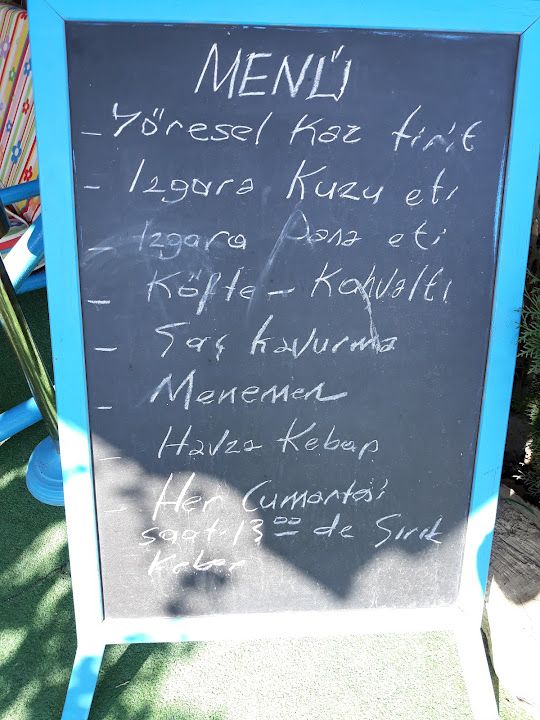 MENÜ
- Yöresel Kaz tirit
- Izgara Kuzu eti
- Izgara Dana eti
- Köfte - Kahvaltı
- Saç kavurma
- Menemen
- Havza Kebap
- Her Cumartesi
saat:13 00 de Sırık
Kebap